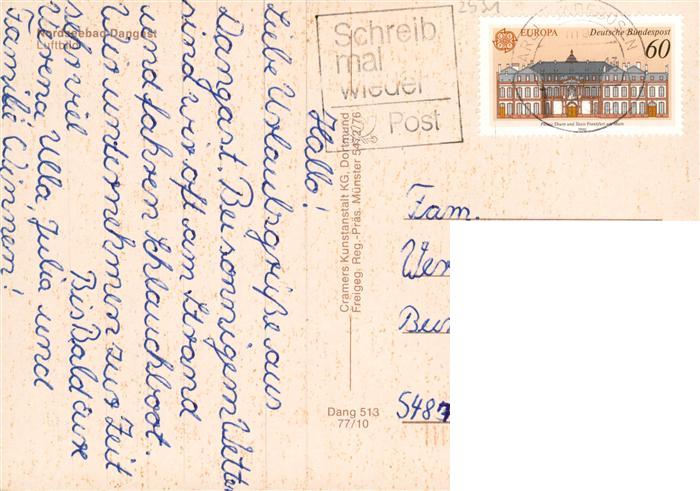 Nordseebad Dangast
Luftbild
Hallo!
Liebe Urlaubsgrüße aus
Dangast. Bei sonnigem Wetter
sind wir oft am Strand
und fahren Schlauchboot.
Wir unternehmen zur Zeit
sehr viel
Bis Bald eure
Verena Ulla, Julia und
Familie
Cramers Kunstanstalt KG, Dortmund
Freigeg. Reg.-Präs. Münster 5472/76
Dang 513
77/10
2931
Schreib
mal
wieder
Post
EUROPA
Deutsche Bundespost
60
Palais Thurn und Taxis Frankfurt am Main
1990
Fam.
Wer
Bu
5487